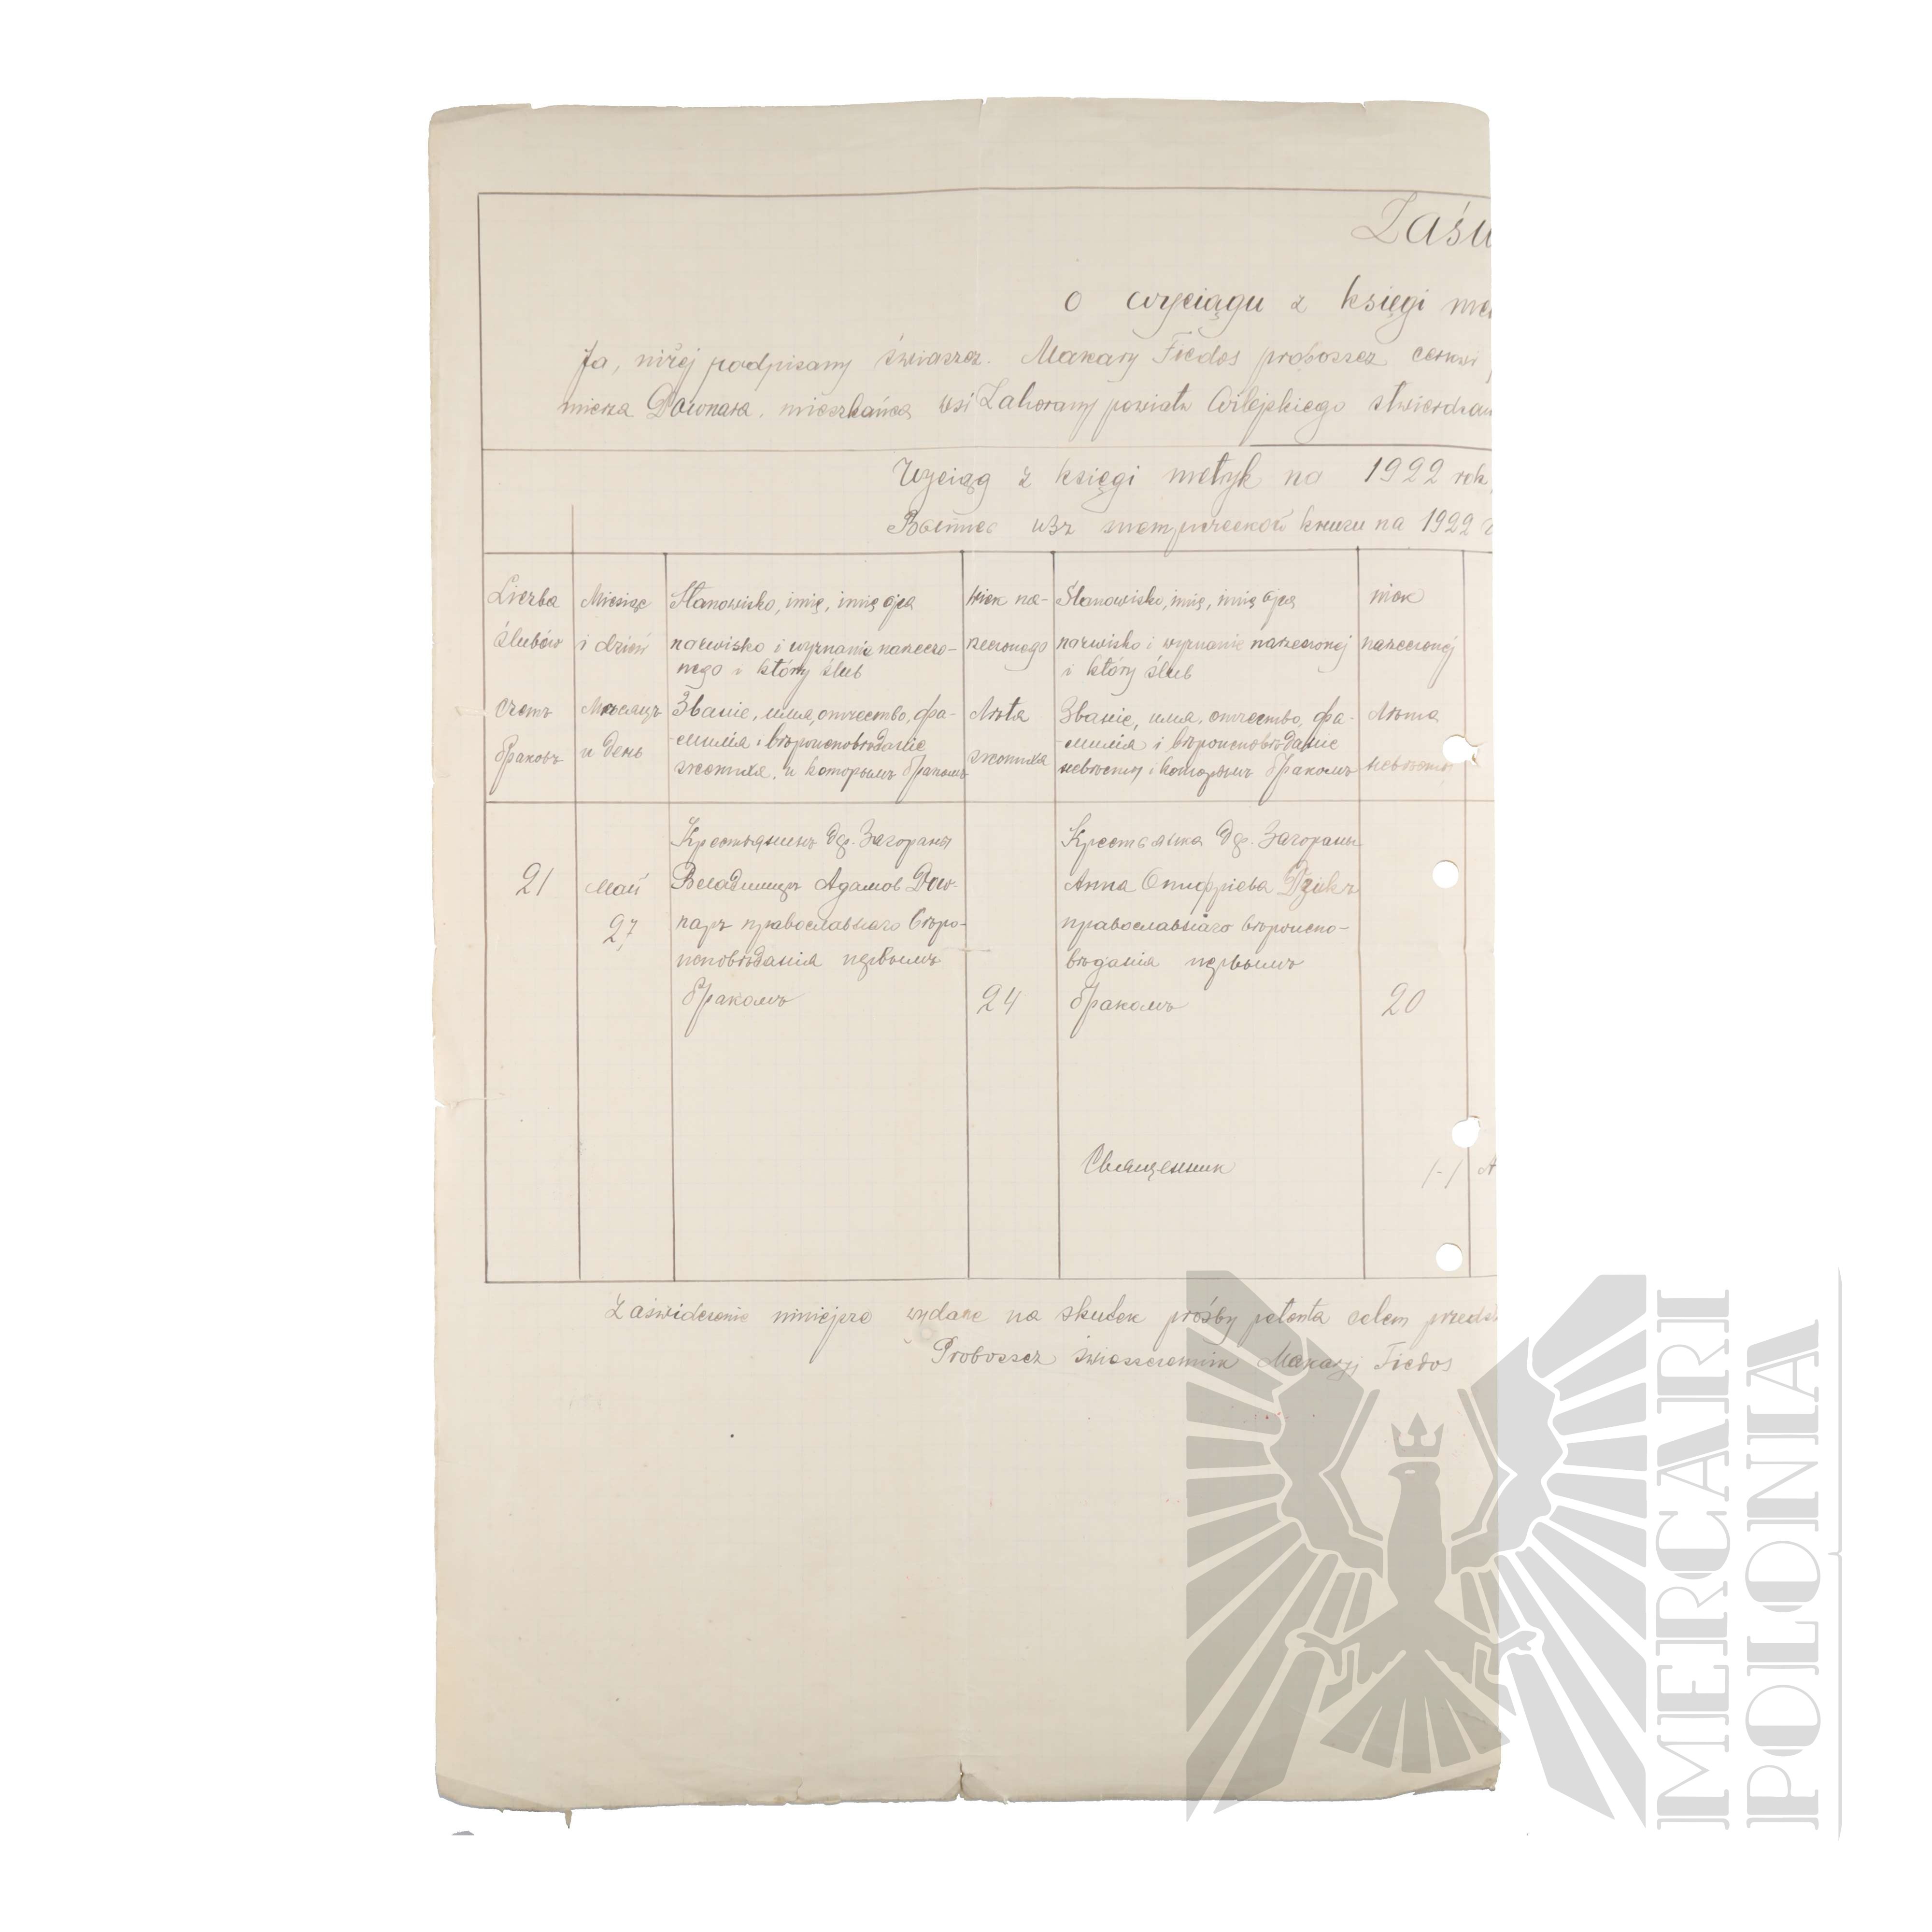 Zaśw
o wyciągu z księgi me
Ja, niżej podpisany świaszcz. Makary Fiedos proboszcz cerkwi
mierza Downara, mieszkańca wsi Zahorany powiatu Wilejskiego stwierdzam
Wyciąg z księgi metryk na 1922 rok
изъ метрической книги на 1922
Liczba
ślubów
счетъ
браковъ
Miesiąc
i dzień
Мѣсяцъ
и день
Stanowisko, imię, imię ojca
nazwisko i wyznanie narzeczo-
nego i który ślub
Званіе, имя, отчество, фа-
милія і вѣроисповѣданіе
жениха, и которымъ бракомъ
Wiek na-
rzeczonego
Лѣта
жениха
Stanowisko, imię, imię ojca
nazwisko i wyznanie narzeczonej
i który ślub
Званіе, имя, отчество, фа-
милія і вѣроисповѣданіе
невѣсты і которымъ бракомъ
wiek
narzeczonej
Лѣта
невѣсты
21
Май
27
Крестьянинъ дер. Загораны
Владимиръ Адамов Dow-
наръ православнаго вѣро-
исповѣданія первымъ
бракомъ
24
Крестьянка дер. Загораны
Анна Онифріева Dzikъ
православнаго вѣроиспо-
вѣданія первымъ
бракомъ
20
Священник /-/ А
Zaświdczenie niniejsze wydane na skutek prośby petenta celem przedst
Proboszcz świaszczennik Makaryj Fiedos
MERCARI
POLONIA